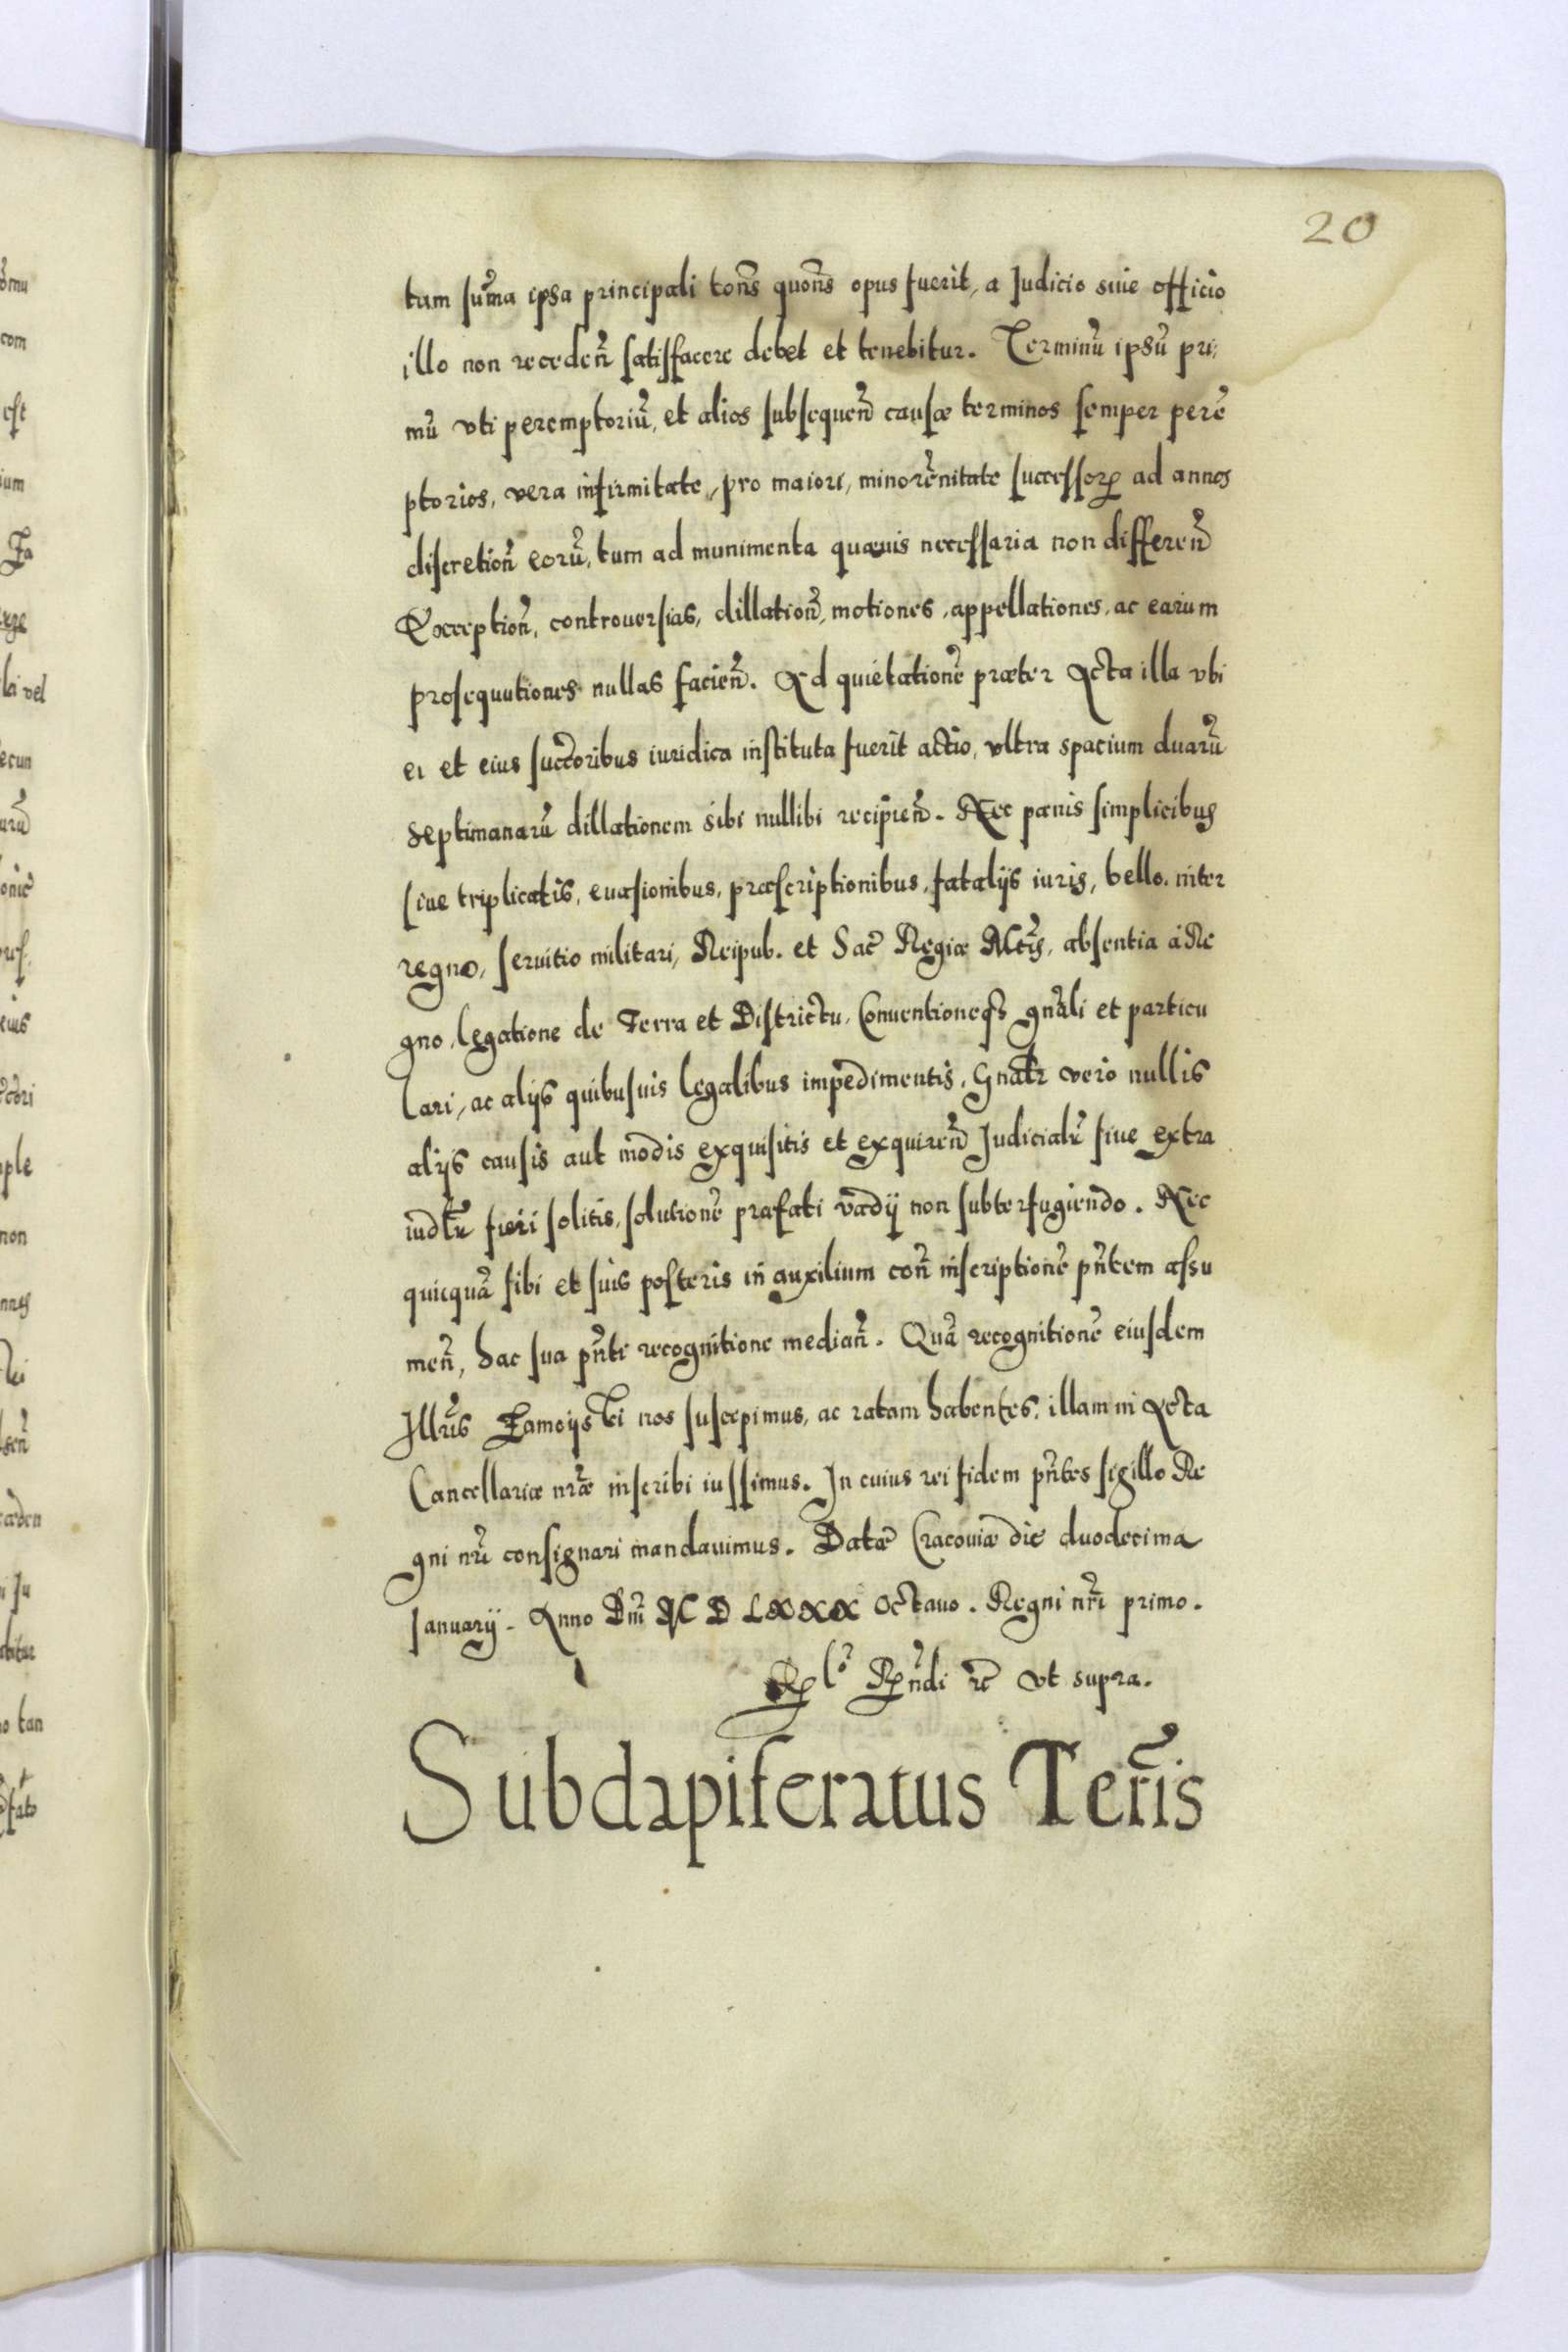 20
tum sum̃a ipsa principali ton̄s quon̄s opus fuerit, a Judicio siue officio
illo non receden̄ satisfacere debet et tenebitur. Terminũ ipsũ pri,
mũ vti peremptoriũ, et alios subsequen̄ causæ terminos semper perẽ
ptorios, vera infirmitate, pro maiori, minorẽnitate successorꝝ ad annos
discretion̄ eorũ, tum ad munimenta quæuis necessaria non differen̄
Exception̄, controuersias, dillation̄, motiones, appellationes, ac earum
prosequutiones nullas facien̄. Ad quietationẽ præter Acta illa vbi
ei et eius succ̃oribus iuridica instituta fuerit actio, vltra spacium duarũ
septimanarũ dillationem sibi nullibi recipien̄. Nec pænis simplicibus
siue triplicatis, euasionibus, præscriptionibus, fatalijs iuris, bello, inter
regno, seruitio militari, Reipub. et Sac̃ Regiæ Mt̃is, absentia à Re
gno, legatione de Terra et Districtu, Conuentioneqʒ gnãli et particu
lari, ac alijs quibusuis legalibus impedimentis, Gnãlr vero nullis
alijs causis aut modis exquisitis et exquiren̄ Judicialr̃ siue extra
iudlr̃ fieri solitis, solutionẽ præfati vadij non subterfugiendo. Nec
quicquã sibi et suis posteris in auxilium con̄ inscriptionẽ pñtem assu
men̄, hac sua pñti recognitione median̄. Quã recognitionẽ eiusdem
Illr̃is Zamoijski nos suscepimus, ac ratam habentes, illam in Acta
Cancellariæ nr̃æ inscribi iussimus. In cuius rei fidem pñtes sigillo Re
gni nr̃i consignari mandauimus. Datæ Cracouiæ die duodecima
Januarij. Anno Dn̄i M D LXXX Octauo. Regni nr̃i primo.
Rñdi ut supra.
Subdapiferatus Terr̃is